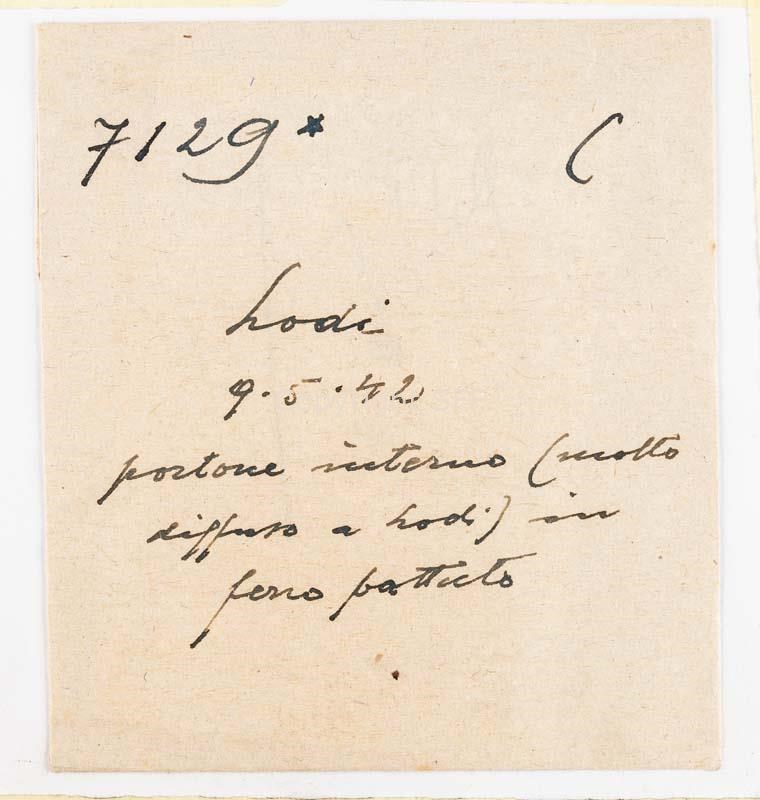 7129* C
Lodi
9.5.42
portone interno (molto
diffuso a Lodi) in
ferro battuto